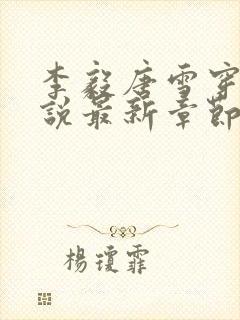 李毅唐雪穿
說最新章節
楊瓊霏